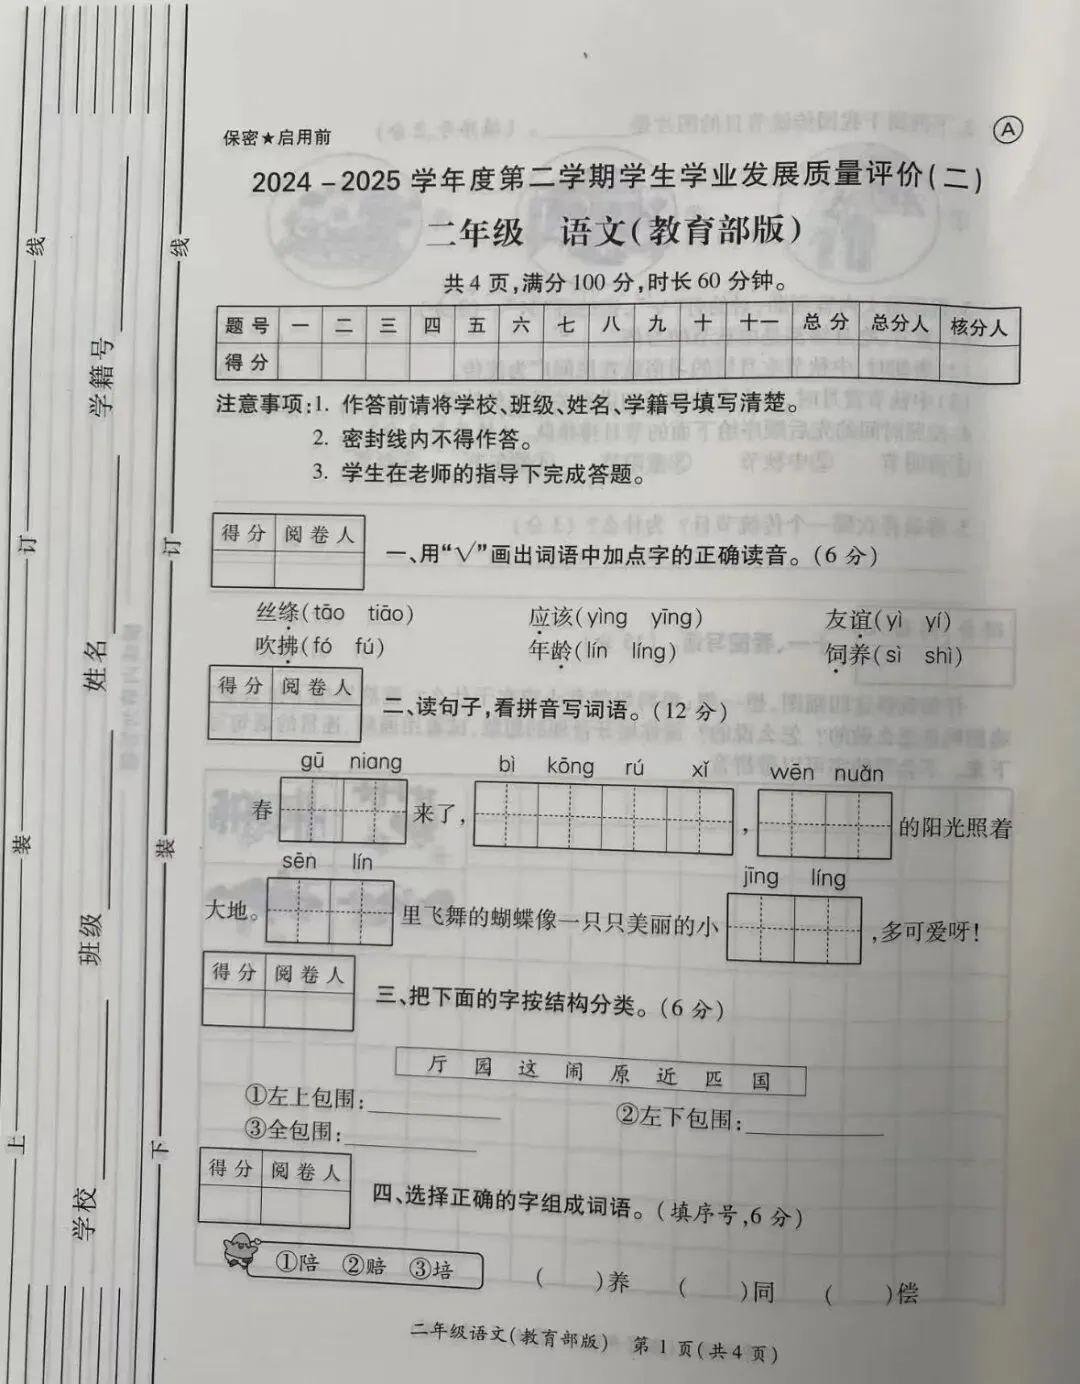 保密★启用前
A
2024-2025学年度第二学期学生学业发展质量评价(二)
二年级 语文(教育部版)
共4页,满分100分,时长60分钟。
题号 一 二 三 四 五 六 七 八 九 十 十一 总分 总分人 核分人
得分
注意事项:1. 作答前请将学校、班级、姓名、学籍号填写清楚。
2. 密封线内不得作答。
3. 学生在老师的指导下完成答题。
得分 阅卷人
一、用“√”画出词语中加点字的正确读音。(6分)
丝绦(tāo tiāo) 应该(yìng yīng) 友谊(yì yí)
吹拂(fó fú) 年龄(lín líng) 饲养(sì shì)
得分 阅卷人
二、读句子,看拼音写词语。(12分)
gū niang bì kōng rú xǐ wēn nuǎn
春 来了, , 的阳光照着
sēn lín jīng líng
大地。 里飞舞的蝴蝶像一只只美丽的小 ,多可爱呀!
得分 阅卷人
三、把下面的字按结构分类。(6分)
厅 园 这 闹 原 近 匹 国
①左上包围:________ ②左下包围:________
③全包围:________
得分 阅卷人
四、选择正确的字组成词语。(填序号,6分)
①陪 ②赔 ③培 ( )养 ( )同 ( )偿
二年级语文(教育部版) 第1页(共4页)
学校 班级 姓名 学籍号
上 装 订 线
下 装 订 线